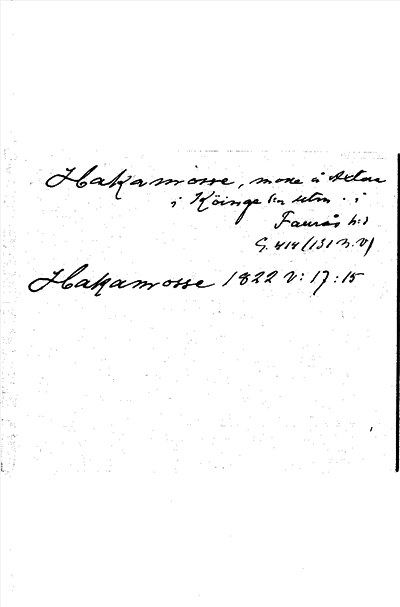 Hakamosse, mosse å Axtor
i Köinge sn utm. i
Faurås hd
G. 414 (131 n. v)
Hakamosse 1822 V: 17: 15